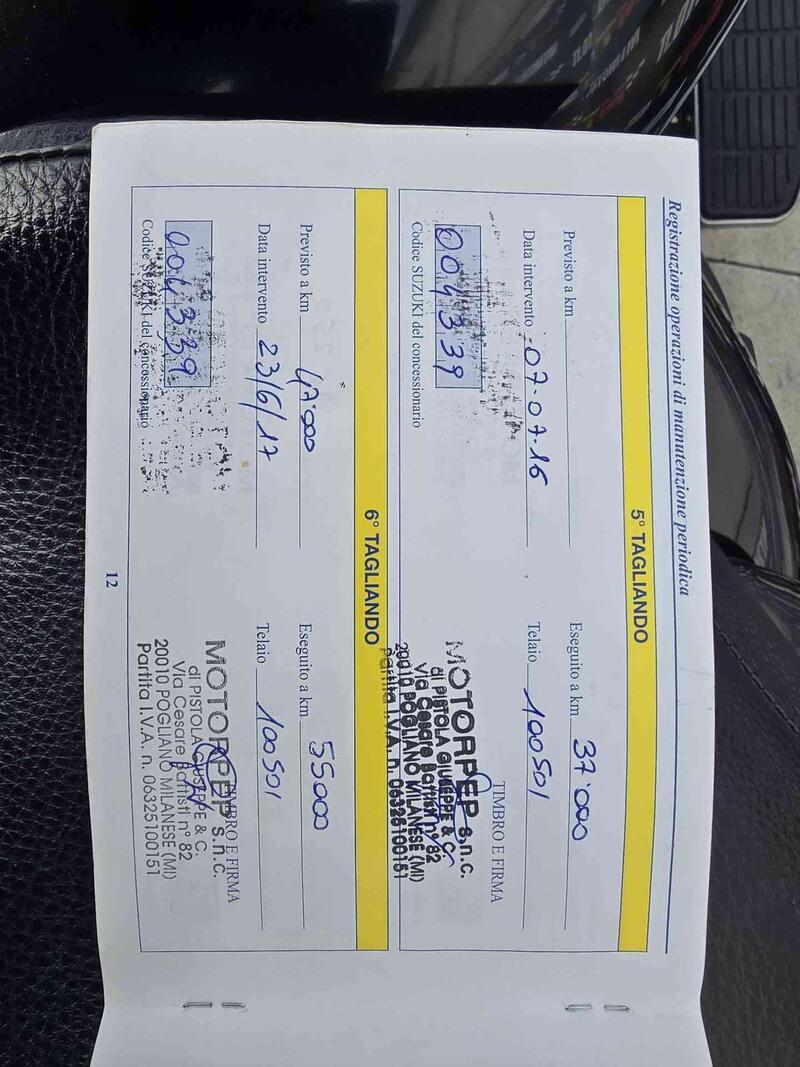 Registrazione operazioni di manutenzione periodica
5° TAGLIANDO
Previsto a km
Eseguito a km 37'000
Data intervento 07-07-16
Telaio 100501
004339
Codice SUZUKI del concessionario
TIMBRO E FIRMA
MOTORPEP s.n.c.
di PISTOLA GIUSEPPE & C.
Via Cesare Battisti n° 82
20010 POGLIANO MILANESE (MI)
Partita I.V.A. n. 06325100151
6° TAGLIANDO
Previsto a km 47'000
Eseguito a km 55000
Data intervento 23/6/17
Telaio 100501
004339
Codice SUZUKI del concessionario
TIMBRO E FIRMA
MOTORPEP s.n.c.
di PISTOLA GIUSEPPE & C.
Via Cesare Battisti n° 82
20010 POGLIANO MILANESE (MI)
Partita I.V.A. n. 06325100151
12